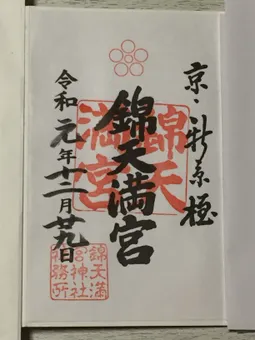 京・新京極
錦天
満宮
錦天満宮
令和元年十二月廿九日
錦天満
宮神社
務所